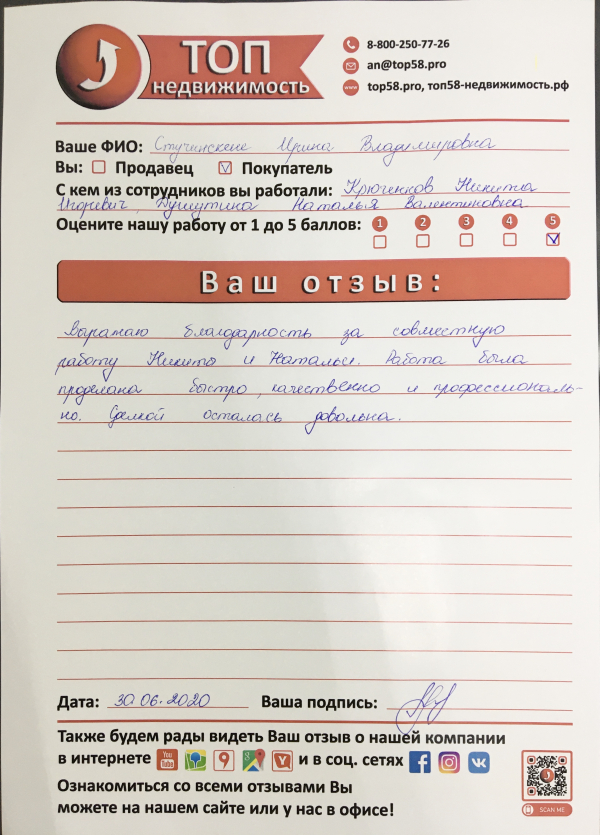 ТОП
недвижимость
8-800-250-77-26
an@top58.pro
www
top58.pro, топ58-недвижимость.рф
Ваше ФИО: Стучинскене Ирина Владимировна
Вы: Продавец Покупатель
С кем из сотрудников вы работали: Крюченков Никита
Игоревич, Душутина Наталья Валентиновна
Оцените нашу работу от 1 до 5 баллов: 1 2 3 4 5
Ваш отзыв:
Выражаю благодарность за совместную
работу Никиты и Натальи. Работа была
проделана быстро, качественно и профессиональ-
но. Сделкой осталась довольна.
Дата: 30.06.2020 Ваша подпись:
Также будем рады видеть Ваш отзыв о нашей компании
в интернете You Tube и в соц. сетях
Ознакомиться со всеми отзывами Вы
можете на нашем сайте или у нас в офисе!
SCAN ME